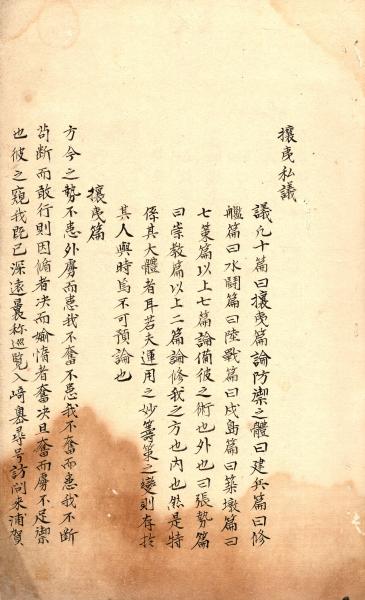 攘夷私議
議凡十篇曰攘夷篇論防禦之體曰建兵篇曰修
艦篇曰水鬪篇曰陸戰篇曰戍島篇曰築墩篇曰
七策篇以上七篇論備彼之術也外也曰張勢篇
曰崇教篇以上二篇論修我之方也内也然是特
係其大體者耳若夫運用之妙籌策之變則存於
其人與時焉不可預論也
攘夷篇
方今之勢不患外虜而患我不奮不患我不奮而患我不斷
苟斷而敢行則因循者決而媮惰者奮決且奮而虜不足禦
也彼之窺我既已深遠曩称巡覧入崎墨尋号訪问来浦賀